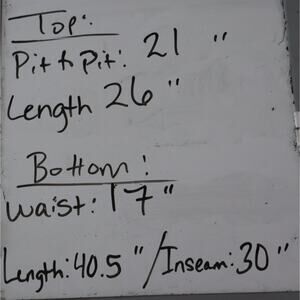 Top:
Pit to Pit: 21 "
Length 26 "
Bottom:
Waist: 17"
Length: 40.5 "/Inseam: 30"